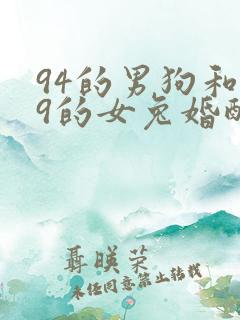 94的男狗和
9的女兔婚配
聂暎荣
未经同意禁止转载